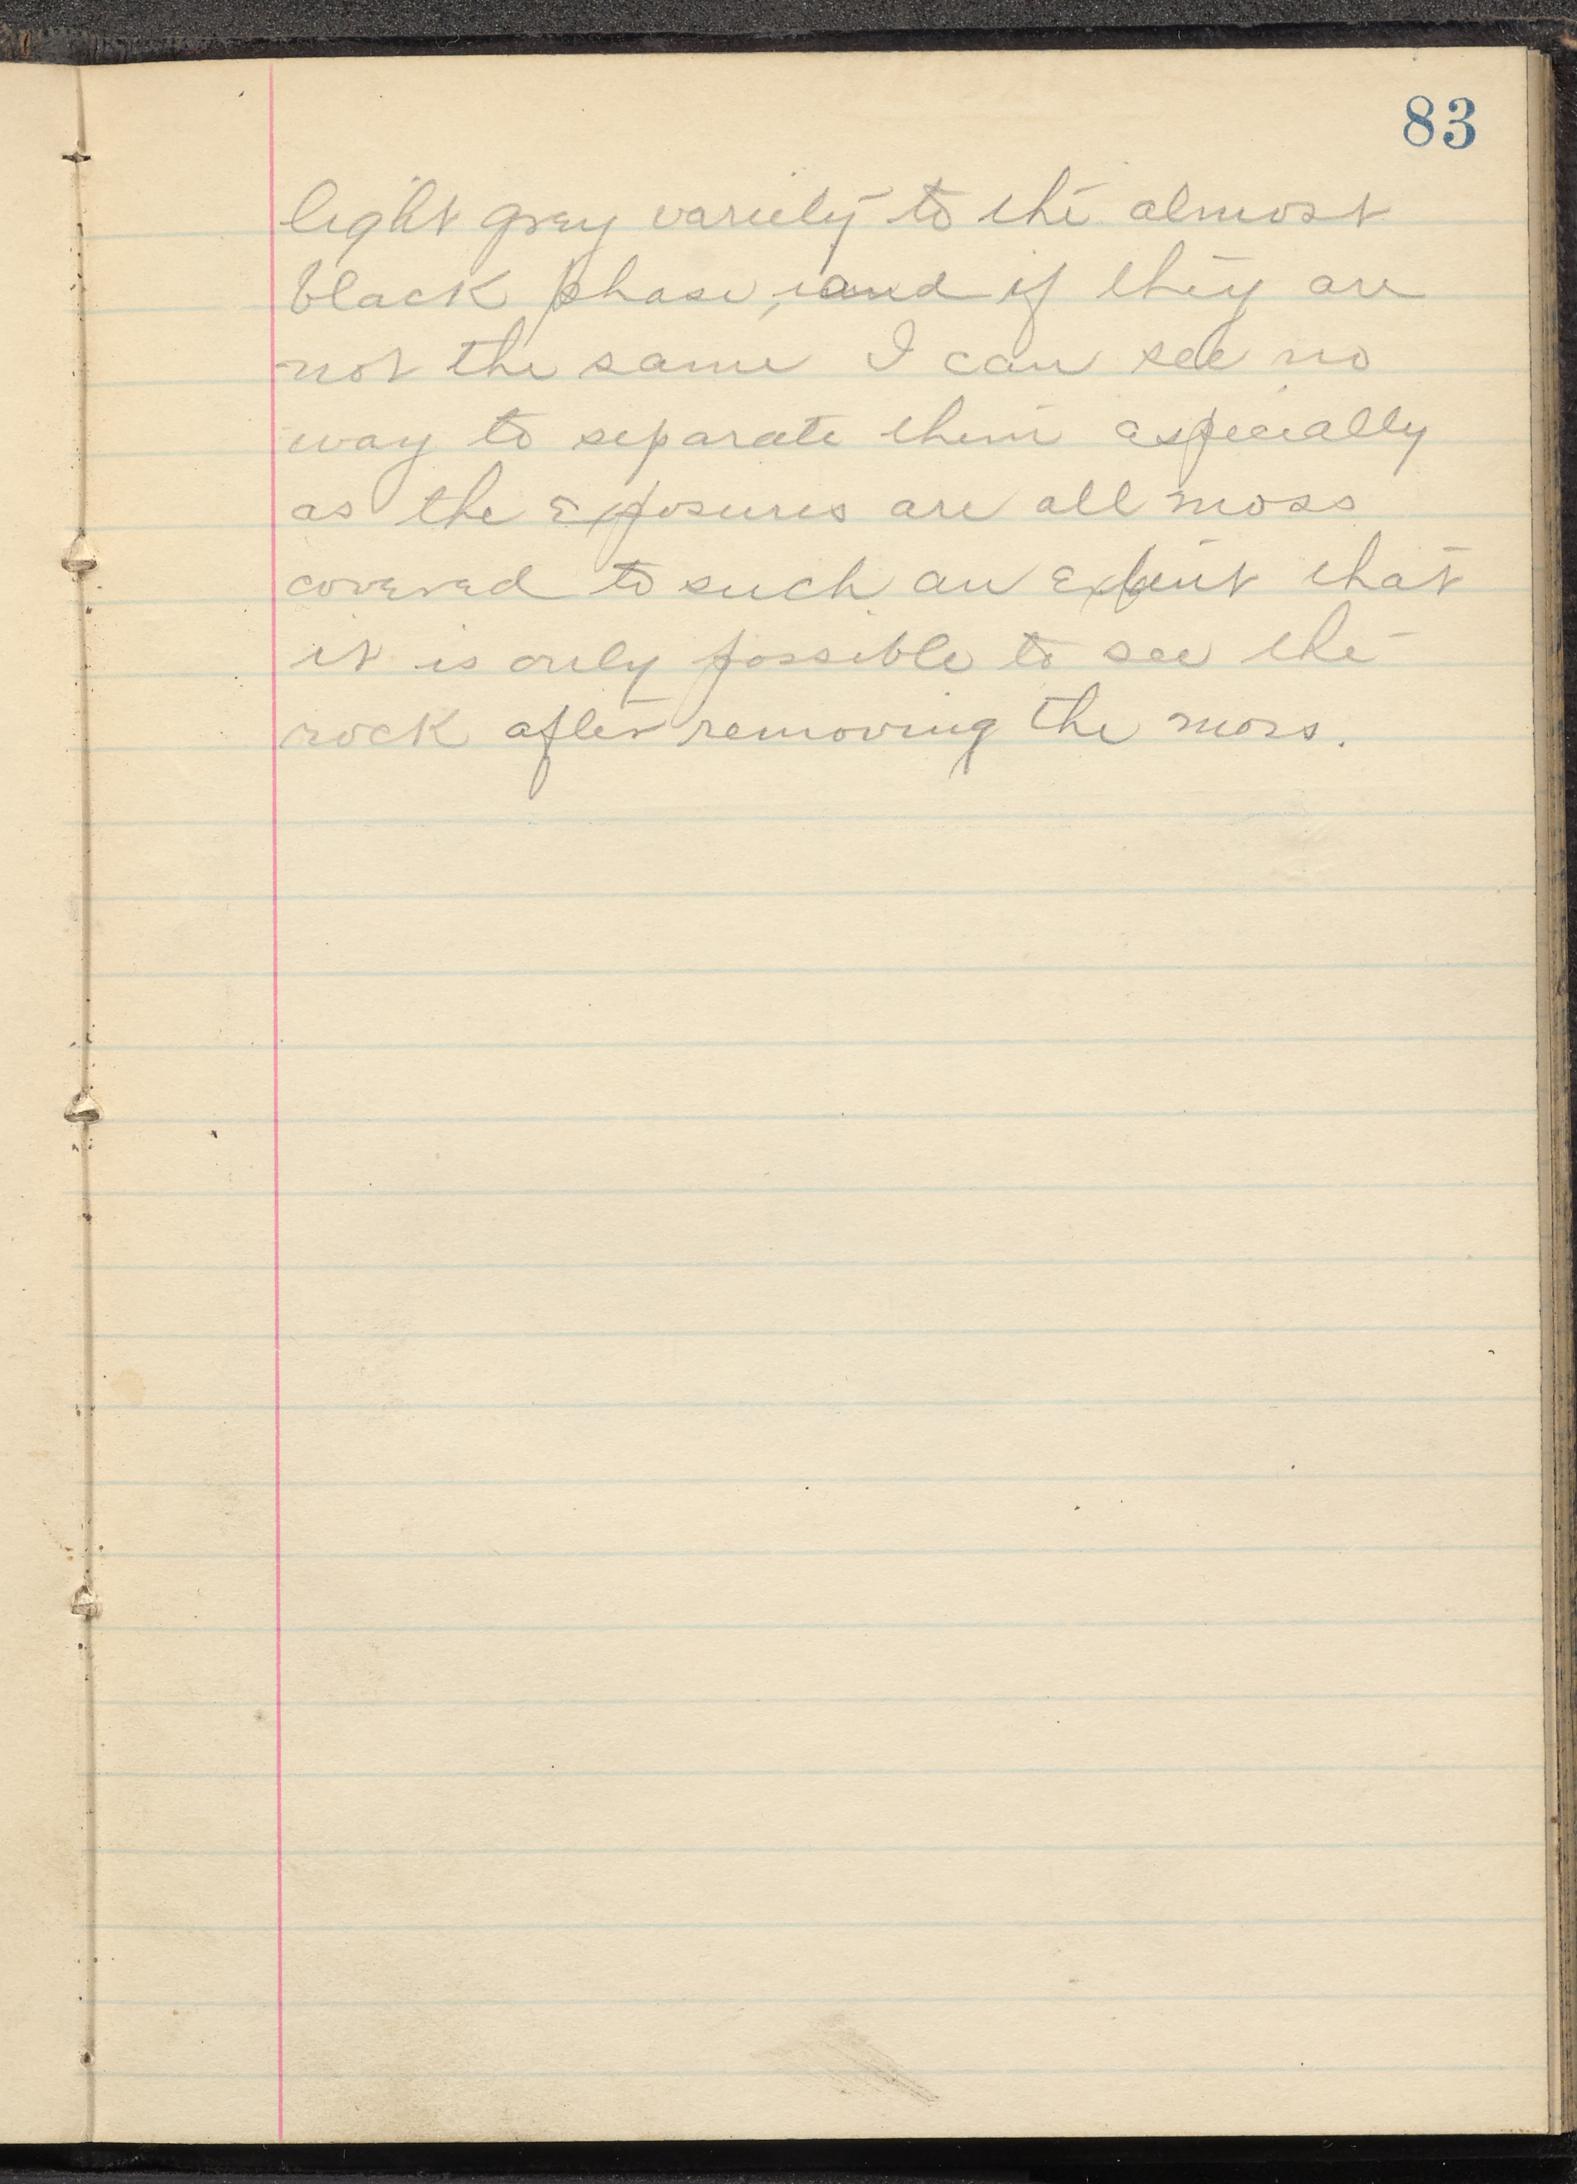 83
light gray variety to the almost
black phase, and if they are
not the same I can see no
way to separate them especially
as the exposures are all moss
covered to such an extent that
it is only possible to see the
rock after removing the moss.